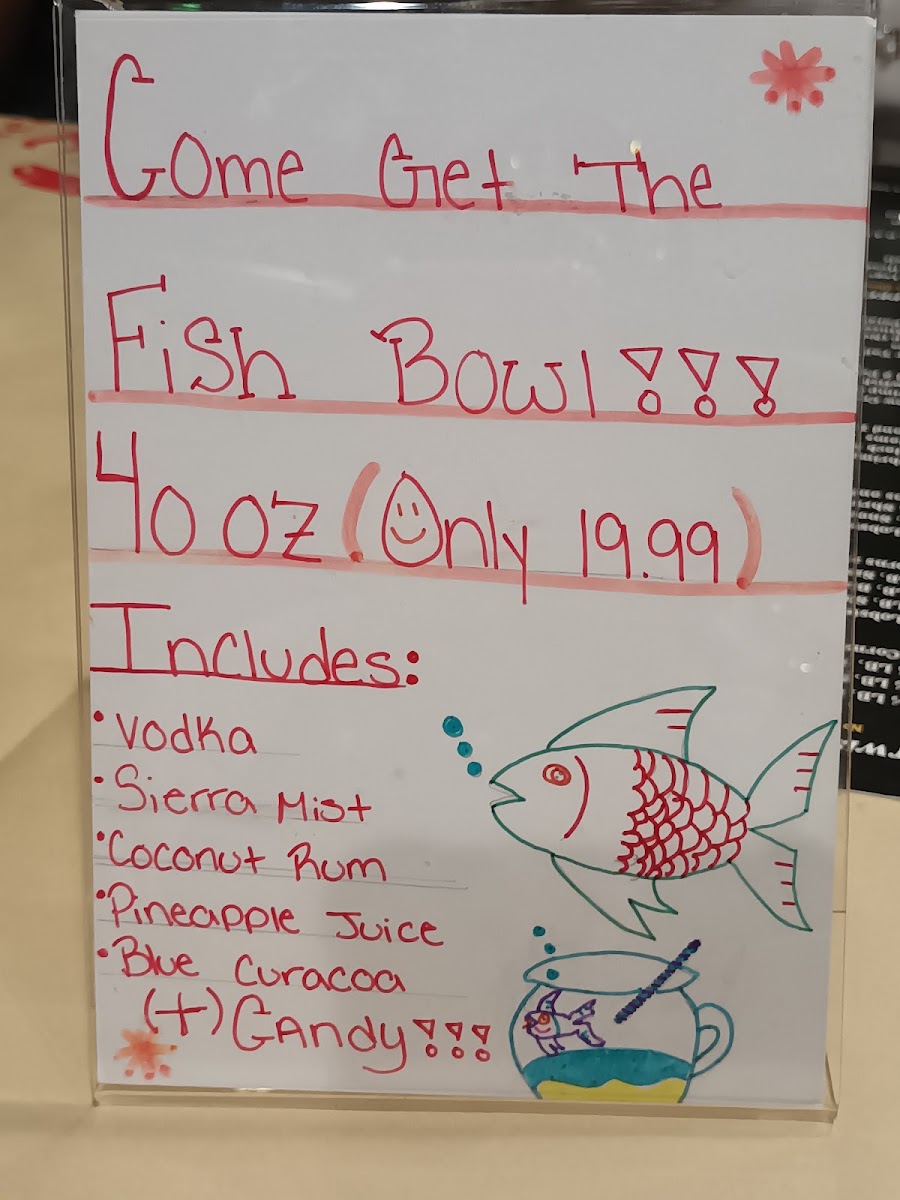 Come Get The
Fish Bowl!!!
40 oz (Only 19.99)
Includes:
• Vodka
• Sierra Mist
• Coconut Rum
• Pineapple Juice
• Blue Curacoa
(+) Candy!!!